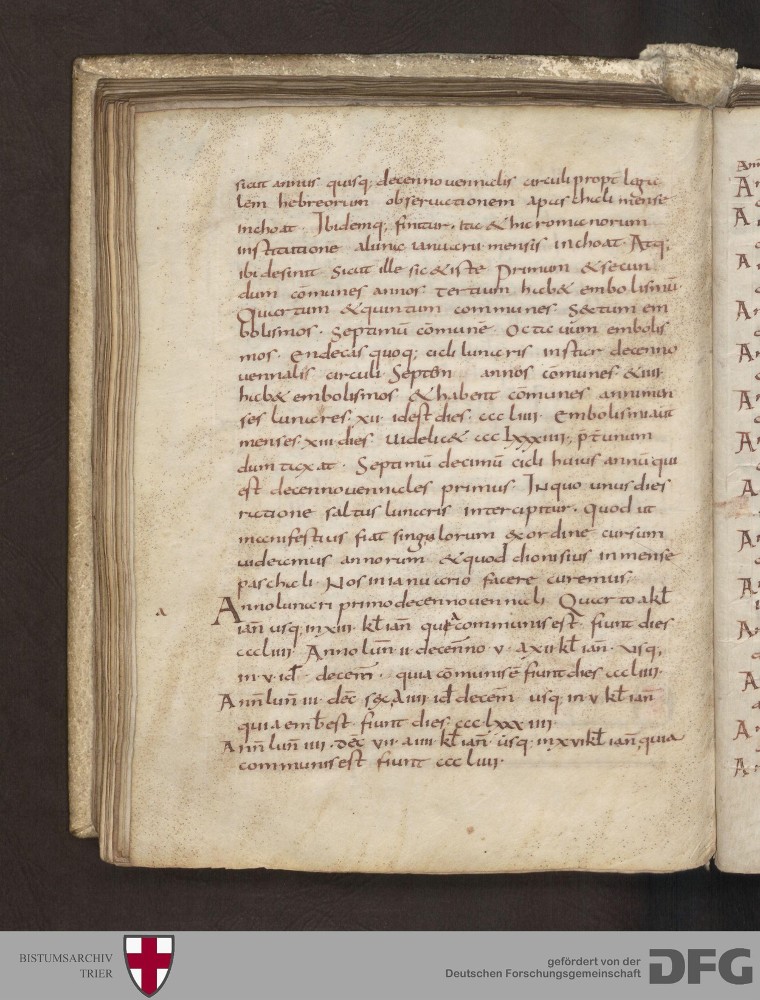 sicut annus quisq; decennouennalis circuli propt lega
lem hebreorum obseruationem apaschali mense
inchoat. Ibidemq; finitur. ita & hic romanorum
institutione alunae ianuarii mensis inchoat. Atq;
ibi desinit. Sicut ille sic & iste primum & secun
dum cōmunes annos. tertium hab& embolismū.
Quartum & quintum communes. Sextum em
bolismos. Septimū cōmune. Octauum embolis
mos. Endecas quoq; cicli lunaris instar decenno
uennalis circuli. Septem annos cōmunes & iiii
hab& embolismos & habent cōmunes anni men
ses lunares. xii. idest dies. ccc liiii. Embolismi aūt
menses. xiii. dies. Uidelic& ccc lxxxiiii. pt unam
dum taxat. Septimū decimū cicli huius annū qui
est decennouennales primus. In quo unus dies
ratione saltus lunaris intercipitur. Quod ut
manifestius fiat singulorum ex ordine cursum
uideamus annorum. & quod dionisius in mense
paschali. Nos in ianuario facere curemus.
a
Anno lunari primo decennouennali. Quarto a kł
ian usq; in xiii. kł ian quia communis est. fiunt dies
ccc liiii. Anno lun ii decenno v. a xii kł ian. usq;
in. v. id. decem. quia cōmunis ē fiunt dies ccc liiii.
Ann lun iii. dec sex a iiii. id decem usq; in v kł ian
quia emb est. fiunt dies. ccc lxxx iiii.
Ann lun iiii. dec vii. a iiii. kł ian. usq; in xvi kł ian, quia
communis est fiunt ccc liiii.
BISTUMSARCHIV
TRIER
gefördert von der
Deutschen Forschungsgemeinschaft
DFG